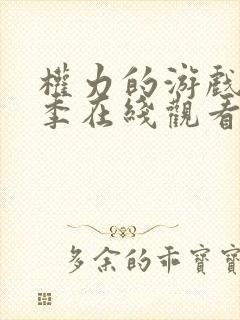 權力的游戲
季在綫觀看
多余的乖寶寶